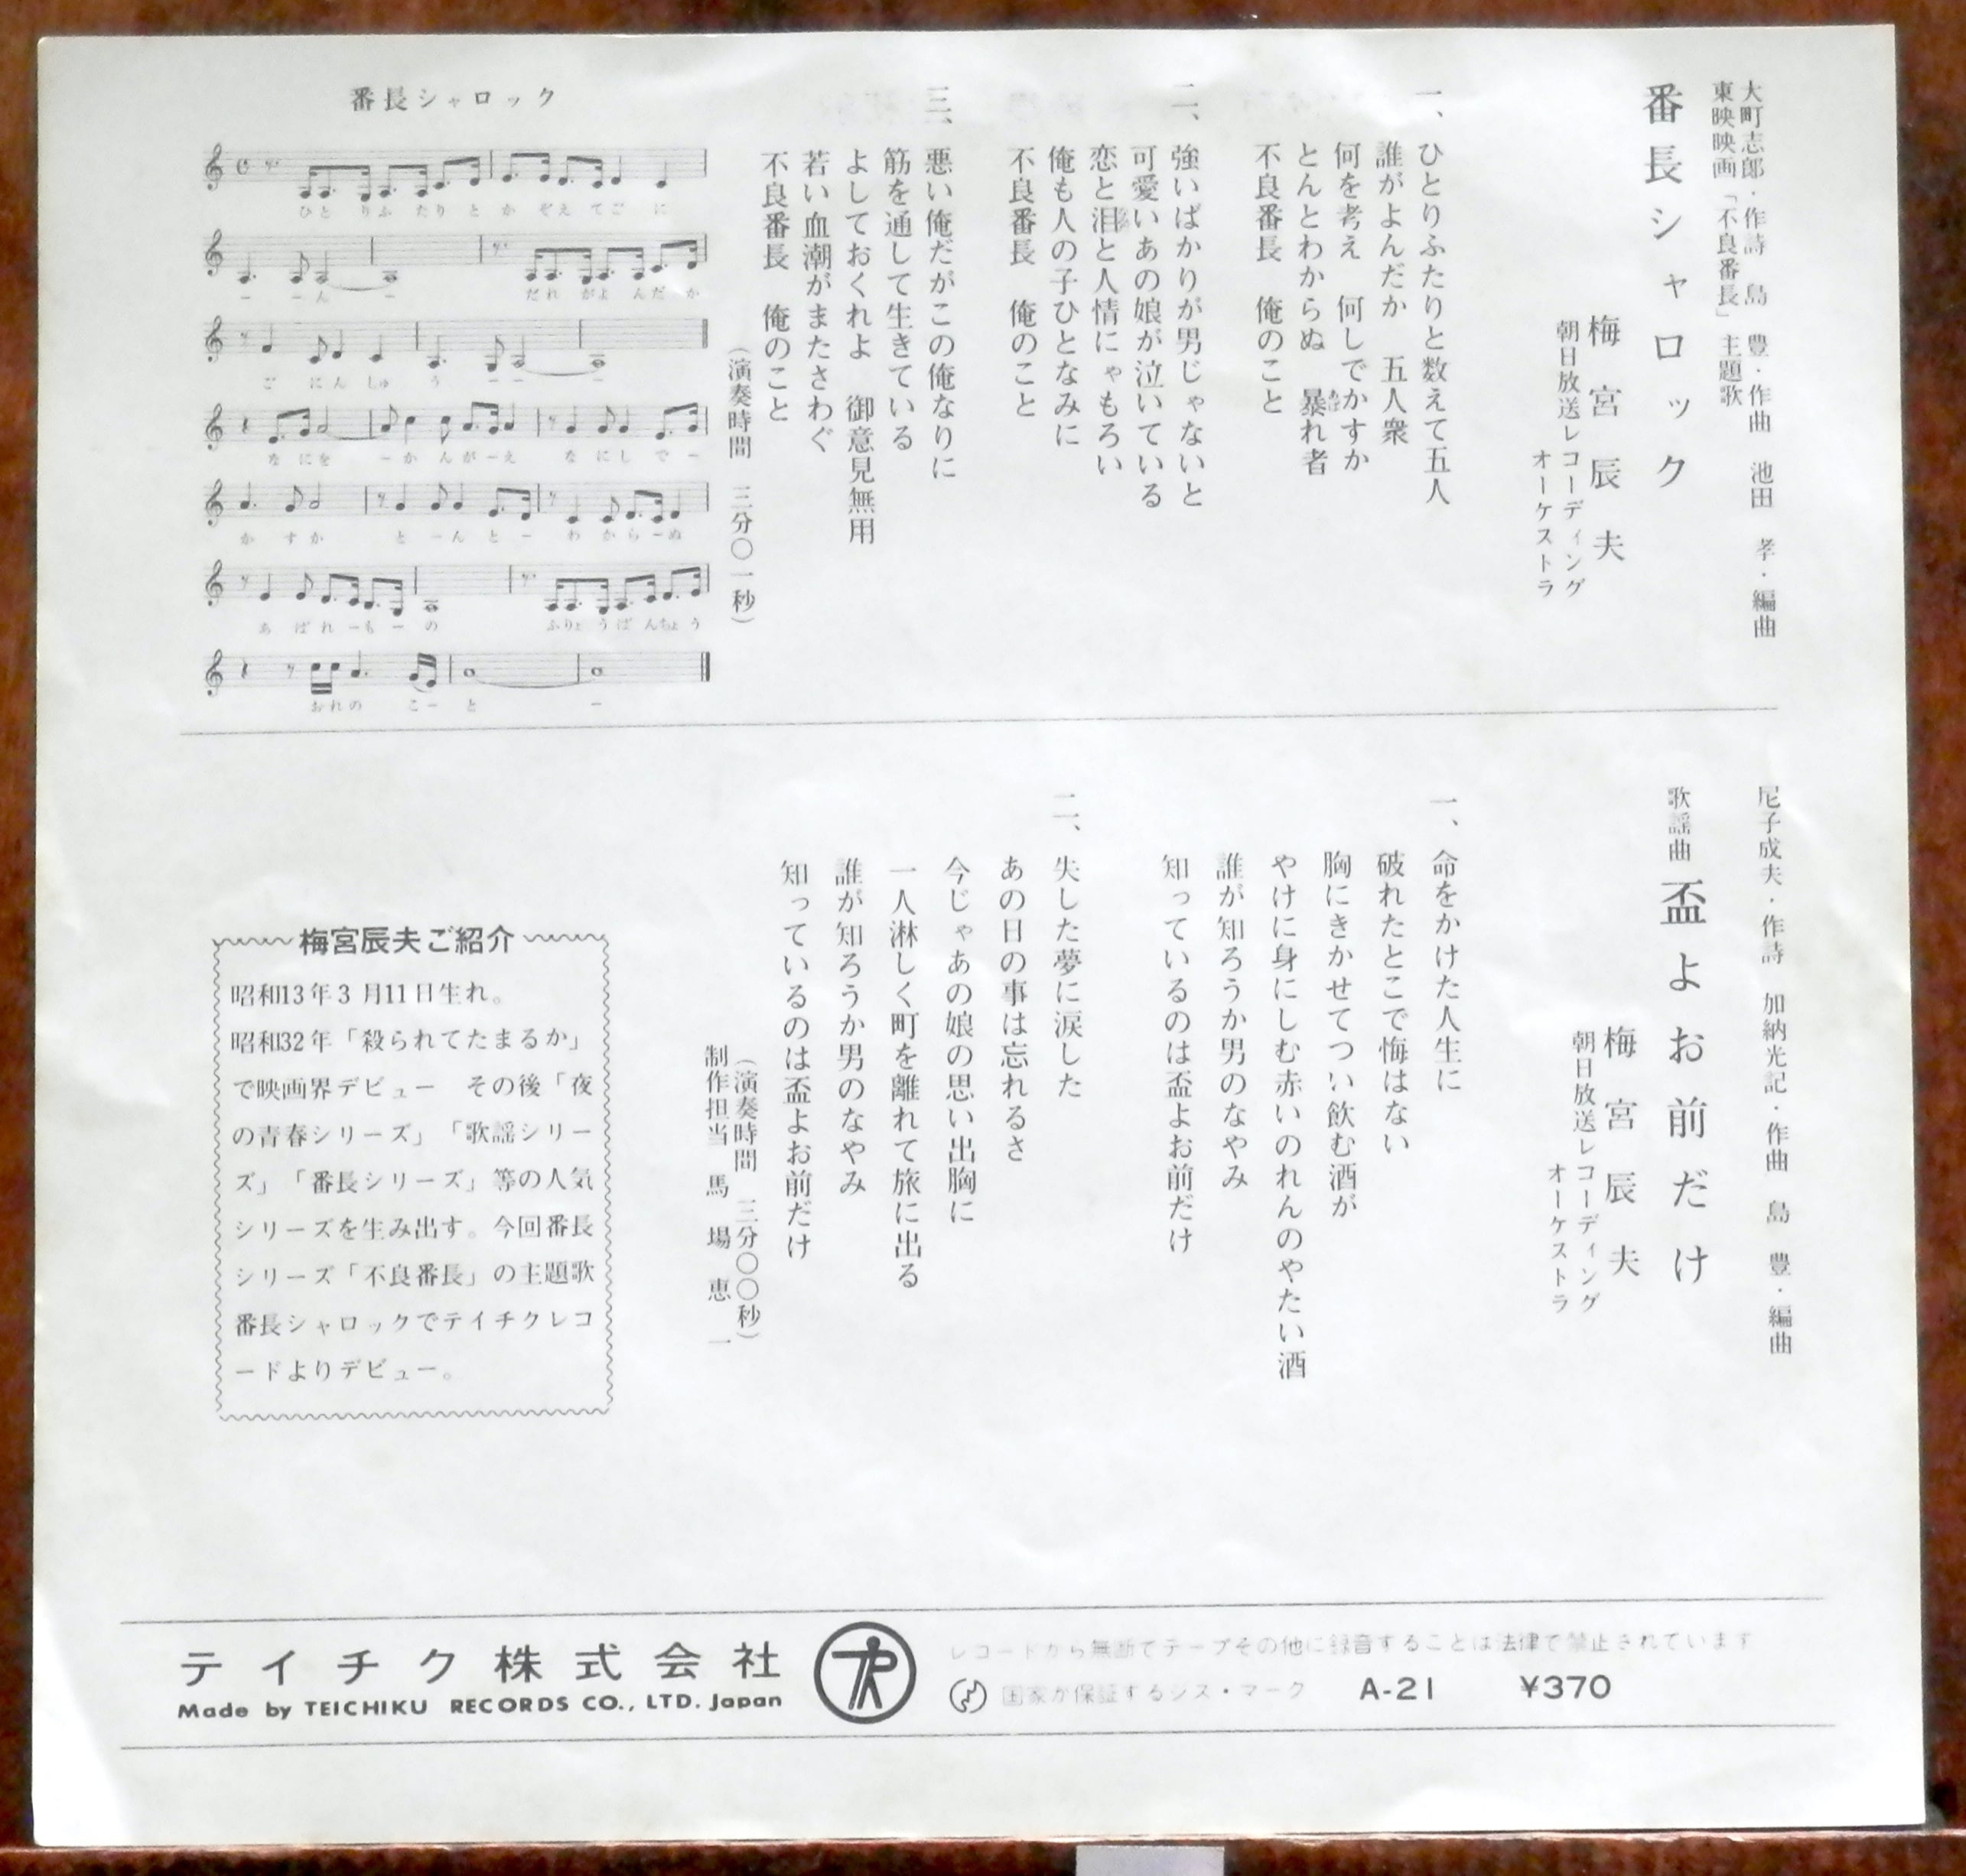 大町志郎・作詩　島　豊・作曲　池田　孝・編曲
東映映画「不良番長」主題歌
番長シャロック
梅宮辰夫
朝日放送レコーディング
オーケストラ
一、ひとりふたりと数えて五人
誰がよんだか　五人衆
何を考え　何しでかすか
とんとわからぬ　暴れ者
不良番長　俺のこと
二、強いばかりが男じゃないと
可愛いあの娘が泣いている
恋と泪と人情にゃもろい
俺も人の子ひとなみに
不良番長　俺のこと
三、悪い俺だがこの俺なりに
筋を通して生きている
よしておくれよ　御意見無用
若い血潮がまたさわぐ
不良番長　俺のこと
（演奏時間　三分〇一秒）
番長シャロック
ひと りふ たり と か ぞえ てご に
ー ーん ー だれ がよ んだ か
ご にん しゅ う ーー ー
な にを ーか んがーえ な にし でー
か すか と ーん とー わ からーぬ
あ ばれ ーもー の ふりょ うば んちょ う
おれの こー と ー
尼子成夫・作詩　加納光記・作曲　島　豊・編曲
歌謡曲　盃よお前だけ
梅宮辰夫
朝日放送レコーディング
オーケストラ
一、命をかけた人生に
破れたとこで悔はない
胸にきかせてつい飲む酒が
やけに身にしむ赤いのれんのやたい酒
誰が知ろうか男のなやみ
知っているのは盃よお前だけ
二、失した夢に涙した
あの日の事は忘れるさ
今じゃあの娘の思い出胸に
一人淋しく町を離れて旅に出る
誰が知ろうか男のなやみ
知っているのは盃よお前だけ
（演奏時間　三分〇〇秒）
制作担当　馬場恵一
梅宮辰夫ご紹介
昭和13年3月11日生れ。
昭和32年「殺られてたまるか」
で映画界デビュー　その後「夜
の青春シリーズ」「歌謡シリー
ズ」「番長シリーズ」等の人気
シリーズを生み出す。今回番長
シリーズ「不良番長」の主題歌
番長シャロックでテイチクレコ
ードよりデビュー。
テイチク株式会社
Made by TEICHIKU RECORDS CO., LTD. Japan
レコードから無断でテープその他に録音することは法律で禁止されています
国家が保証するジス・マーク　A-21　¥370